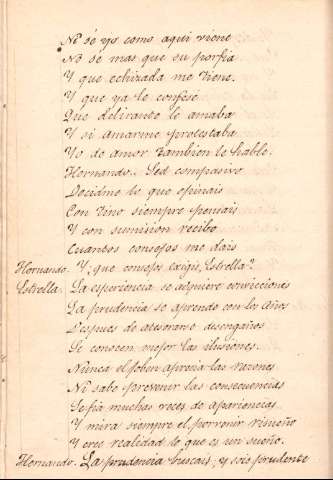 Ni sé yo como aqui viene
No se mas que su porfia
Y que echizada me tiene.
Y que ya le confesé
Que delirante le amaba
Y si amarme protestaba
Yo de amor tambien le hablé.
Hernando. Sed compasivo
Decidme lo que opinais
Con tino siempre pensais
Y con sumision recibo
Cuantos consejos me dais
Hernando. Y, que consejos exigis, Estrella?
Estrella. La esperiencia se adquiere convicciones
La prudencia se aprende con los años
Despues de atesorar desengaños
Se conocen mejor las ilusiones.
Nunca el joben aprecia las razones
Ni sabe prevenir las consecuencias
Se fia muchas veces de apariencias
Y mira siempre el porvenir risueño
Y cree realidad lo que es un sueño.
Hernando. La prudencia buscais, y sois prudente